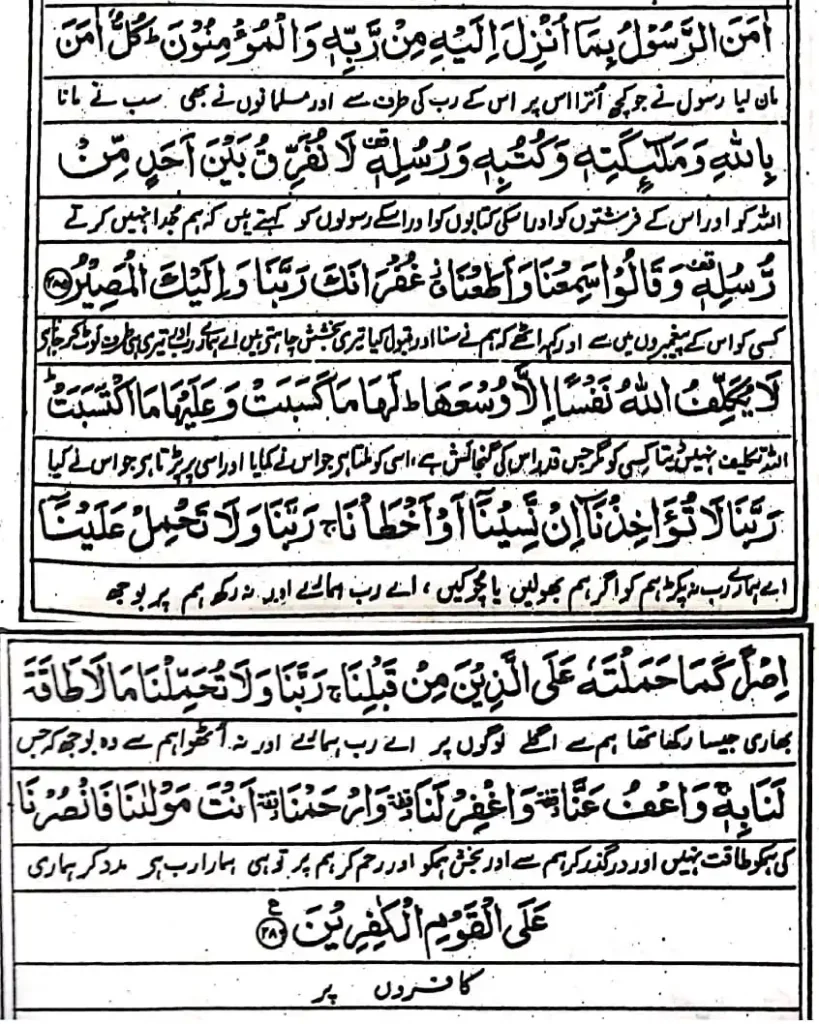 اٰمَنَ الرَّسُوْلُ بِمَآ اُنْزِلَ اِلَيْهِ مِنْ رَّبِّهٖ وَالْمُؤْمِنُوْنَ ؕ كُلٌّ اٰمَنَ
مان لیا رسول نے جو کچھ اُترا اس پر اس کے رب کی طرف سے اور مسلمانوں نے بھی سب نے مانا
بِاللّٰهِ وَمَلٰٓئِكَتِهٖ وَكُتُبِهٖ وَرُسُلِهٖ ۫ لَا نُفَرِّقُ بَيْنَ اَحَدٍ مِّنْ
اللہ کو اور اس کے فرشتوں کو اور اسکی کتابوں کو اور اسکے رسولوں کو کہتے ہیں کہ ہم جُدا نہیں کرتے
رُّسُلِهٖ ۫ وَقَالُوْا سَمِعْنَا وَاَطَعْنَا ۫ غُفْرَانَكَ رَبَّنَا وَاِلَيْكَ الْمَصِيْرُ ﴿۲۸۵﴾
کسی کو اس کے پیغمبروں میں سے اور کہہ اٹھے کہ ہم نے سنا اور قبول کیا تیری بخشش چاہتے ہیں اے ہمارے رب اور تیری ہی طرف لوٹ کر جانا ہے
لَا يُكَلِّفُ اللّٰهُ نَفْسًا اِلَّا وُسْعَهَا ؕ لَهَا مَا كَسَبَتْ وَعَلَيْهَا مَا اكْتَسَبَتْ ؕ
اللہ تکلیف نہیں دیتا کسی کو مگر جس قدر اس کی گنجائش ہے، اسی کو ملتا ہے جو اس نے کمایا اور اسی پر پڑتا ہے جو اس نے کیا
رَبَّنَا لَا تُؤَاخِذْنَآ اِنْ نَّسِيْنَآ اَوْ اَخْطَاْنَا ۚ رَبَّنَا وَلَا تَحْمِلْ عَلَيْنَآ
اے ہمارے رب نہ پکڑ ہم کو اگر ہم بھولیں یا چوکیں ، اے رب ہمارے اور نہ رکھ ہم پر بوجھ
اِصْرًا كَمَا حَمَلْتَهٗ عَلَى الَّذِيْنَ مِنْ قَبْلِنَا ۚ رَبَّنَا وَلَا تُحَمِّلْنَا مَا لَا طَاقَةَ
بھاری جیسا رکھا تھا ہم سے اگلے لوگوں پر اے رب ہمارے اور نہ اُٹھوا ہم سے وہ بوجھ کہ جس
لَنَا بِهٖ ۚ وَاعْفُ عَنَّا ۥ وَاغْفِرْ لَنَا ۥ وَارْحَمْنَا ۥ اَنْتَ مَوْلٰىنَا فَانْصُرْنَا
کی ہمکو طاقت نہیں اور درگذر کر ہم سے اور بخش ہمکو اور رحم کر ہم پر تو ہی ہمارا رب ہے مدد کر ہماری
عَلَى الْقَوْمِ الْكٰفِرِيْنَ ﴿۲۸۶﴾
کافروں پر